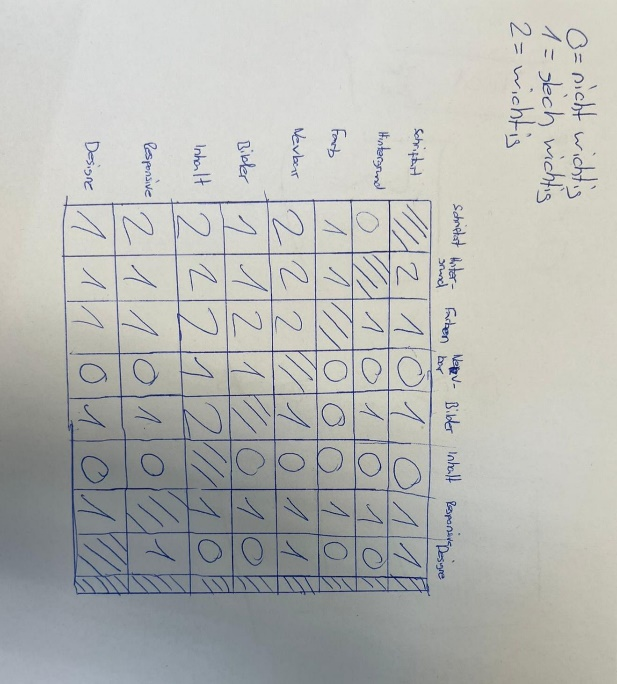 0 = nicht wichtig
1 = gleich wichtig
2 = wichtig
Schriftart Hinter- Farben Bilder Inhalt Responsive Designe
grund bar
Schriftart 2 1 0 1 0 1 1
Hintergrund 0 1 0 1 0 1 0
Farb 1 1 0 0 0 1 0
Navbar 2 2 2 1 0 1 1
Bilder 1 1 2 1 0 1 0
Inhalt 2 2 2 1 2 1 0
Responsive 2 1 1 0 1 0 1
Designe 1 1 1 0 1 0 1